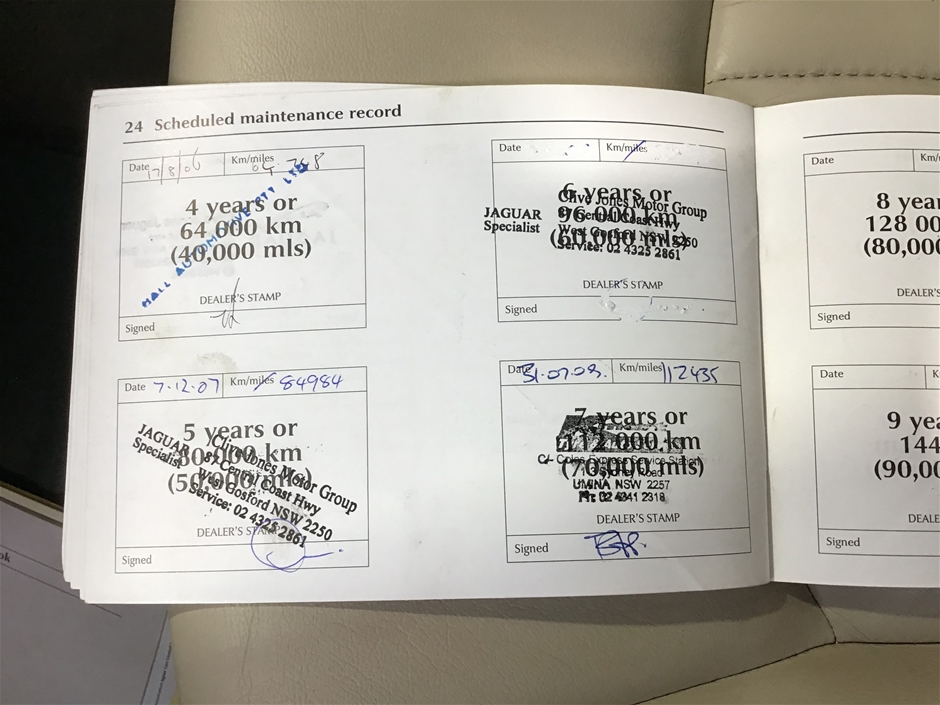 24 Scheduled maintenance record
Date 17/8/06 Km/miles 64 768
4 years or
64,000 km
(40,000 mls)
HALL AUTOMOTIVE PTY LTD
DEALER'S STAMP
Signed
Date Km/miles
6 years or
96,000 km
(60,000 mls)
JAGUAR
Specialist
Clive Jones Motor Group
87 Central Coast Hwy
West Gosford NSW 2250
Service: 02 4325 2861
DEALER'S STAMP
Signed
Date 7.12.07 Km/miles 84984
5 years or
80,000 km
(50,000 mls)
JAGUAR
Specialist
Clive Jones Motor Group
87 Central Coast Hwy
West Gosford NSW 2250
Service: 02 4325 2861
DEALER'S STAMP
Signed
Date 31.07.09. Km/miles 112435
7 years or
112,000 km
(70,000 mls)
C/- Coles Express Service Station
Road
UMINA NSW 2257
PH: 02 4341 2318
DEALER'S STAMP
Signed
Date Km/
8 year
128 00
(80,000
DEALE
Signed
Date K
9 yea
144
(90,00
DEALE
Signed
ok